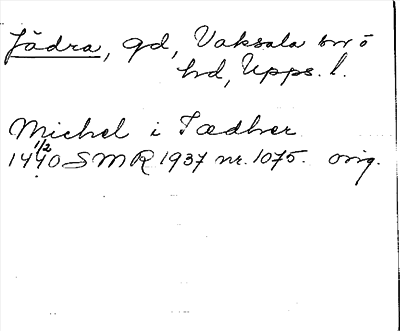 Jädra, gd, Vaksala sn ö
hd, Upps. l.
Michel i Tædher
1440 1/2 SMR 1937 nr. 1075. orig.